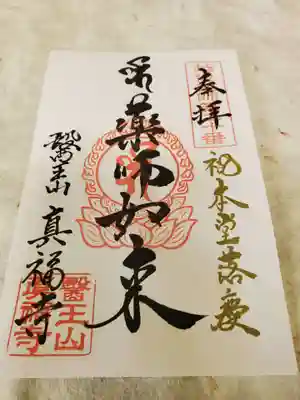 奉拝
祝本堂落慶
薬師如来
醫王山
真福寺
醫王山
真福寺